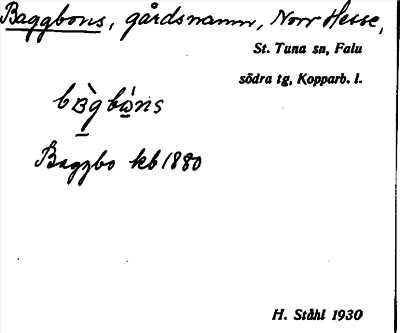 Baggbons, gårdsnamn, Norr Hesse,
St. Tuna sn, Falu
södra tg, Kopparb. l.
Baggbo kb 1880
H. Ståhl 1930